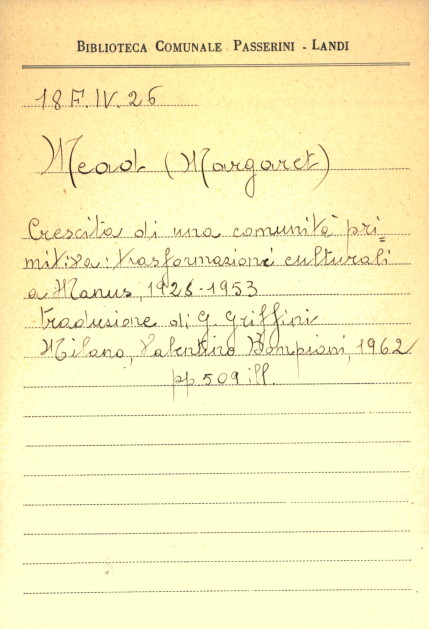 BIBLIOTECA COMUNALE PASSERINI - LANDI
18 F. IV. 26
Mead (Margaret)
Crescita di una comunità pri=
mitiva: trasformazioni culturali
a Manus, 1928-1953
traduzione di G. Griffini
Milano, Valentino Bompiani, 1962
pp 509 ill.